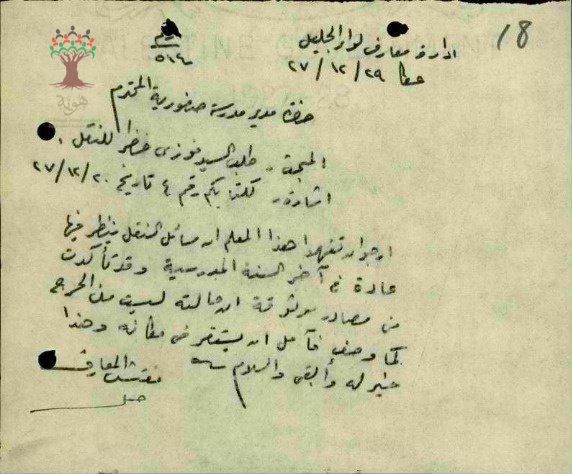 18
ادارة معارف لواء الجليل
عكا ٢٩/١٢/٢٧
رقم
٥١٤
هوية
حضرة مدير مدرسة صفورية المحترم
طلب السيد فوزي خضر للنقل
اشارة لكتابكم رقم ٤ تاريخ ٢٠/١٢/٢٧
ارجو ان تفهموا هذا المعلم ان مسائل النقل ينظر فيها
عادة في آخر السنة المدرسية وقد تأكدت
من مصادر موثوقة ان حالته ليست من الحرج
كما وصف فآمل ان يستقر في مكانه وهذا
خير له وأبقى والسلام
مفتش المعارف